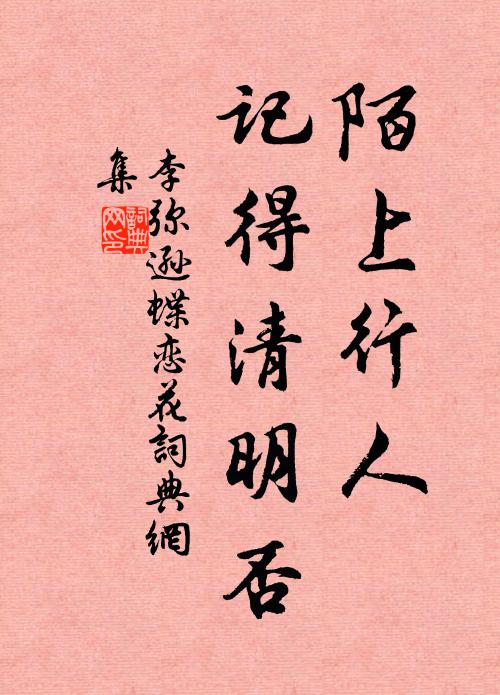 陌上行人
记得清明否
李弥逊蝶恋花詞典網
集
詞典
网印